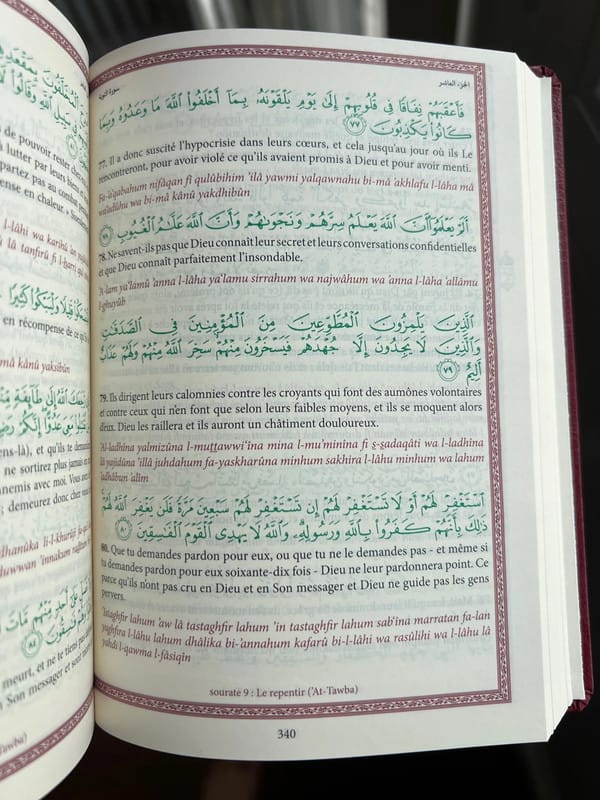 de pouvoir rester chez
lutter par leurs biens
partez pas au combat
en récompense de ce qu'ils
mâ kânû yaksibûn
ens-là), et qu'ils te demandent
ne sortirez plus jamais
nnemis avec moi. Vous
; demeurez donc chez
dhanûka li-l-khurûji
duwwan 'innakum
meurt, et ne te tiens pas
n Son messager et sont
سورة التوبة
الجزء العاشر
فَأَعْقَبَهُمْ نِفَاقًا فِي قُلُوبِهِمْ إِلَىٰ يَوْمِ يَلْقَوْنَهُ بِمَا أَخْلَفُوا اللَّهَ مَا وَعَدُوهُ وَبِمَا
كَانُوا يَكْذِبُونَ ٧٧
77. Il a donc suscité l'hypocrisie dans leurs cœurs, et cela jusqu'au jour où ils Le
rencontreront, pour avoir violé ce qu'ils avaient promis à Dieu et pour avoir menti.
Fa-'a'qabahum nifâqan fî qulûbihim 'ilâ yawmi yalqawnahu bi-mâ 'akhlafu l-lâha mâ
wa'adûhu wa bi-mâ kânû yakdhibûn
أَلَمْ يَعْلَمُوا أَنَّ اللَّهَ يَعْلَمُ سِرَّهُمْ وَنَجْوَاهُمْ وَأَنَّ اللَّهَ عَلَّامُ الْغُيُوبِ ٧٨
78. Ne savent-ils pas que Dieu connaît leur secret et leurs conversations confidentielles
et que Dieu connaît parfaitement l'insondable.
'A-lam ya'lamû 'anna l-lâha ya'lamu sirrahum wa najwâhum wa 'anna l-lâha 'allâmu
l-ghuyûb
الَّذِينَ يَلْمِزُونَ الْمُطَّوِّعِينَ مِنَ الْمُؤْمِنِينَ فِي الصَّدَقَاتِ
وَالَّذِينَ لَا يَجِدُونَ إِلَّا جُهْدَهُمْ فَيَسْخَرُونَ مِنْهُمْ سَخِرَ اللَّهُ مِنْهُمْ وَلَهُمْ عَذَابٌ
أَلِيمٌ ٧٩
79. Ils dirigent leurs calomnies contre les croyants qui font des aumônes volontaires
et contre ceux qui n'en font que selon leurs faibles moyens, et ils se moquent alors
d'eux. Dieu les raillera et ils auront un châtiment douloureux.
'Al-ladhîna yalmizûna l-muṭṭawwi'îna mina l-mu'minîna fi ṣ-ṣadaqâti wa l-ladhîna
lâ yajidûna 'illâ juhdahum fa-yaskharûna minhum sakhira l-lâhu minhum wa lahum
'adhâbun 'alîm
اسْتَغْفِرْ لَهُمْ أَوْ لَا تَسْتَغْفِرْ لَهُمْ إِنْ تَسْتَغْفِرْ لَهُمْ سَبْعِينَ مَرَّةً فَلَنْ يَغْفِرَ اللَّهُ لَهُمْ
ذَٰلِكَ بِأَنَّهُمْ كَفَرُوا بِاللَّهِ وَرَسُولِهِ وَاللَّهُ لَا يَهْدِي الْقَوْمَ الْفَاسِقِينَ ٨٠
80. Que tu demandes pardon pour eux, ou que tu ne le demandes pas - et même si
tu demandes pardon pour eux soixante-dix fois - Dieu ne leur pardonnera point. Ce
parce qu'ils n'ont pas cru en Dieu et en Son messager et Dieu ne guide pas les gens
pervers.
'Istaghfir lahum 'aw lâ tastaghfir lahum 'in tastaghfir lahum sab'îna marratan fa-lan
yaghfira l-lâhu lahum dhâlika bi-'annahum kafarû bi-l-lâhi wa rasûlihi wa l-lâhu lâ
yahdi l-qawma l-fâsiqîn
sourate 9 : Le repentir ('At-Tawba)
340